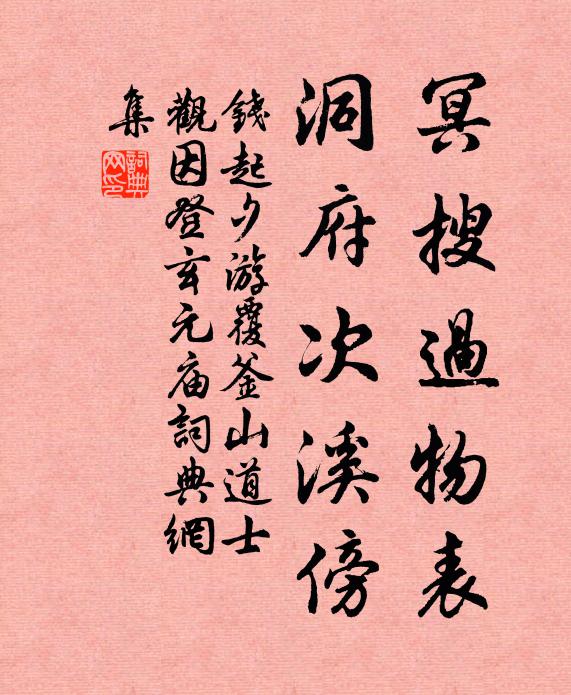 冥搜過物表
洞府次溪傍
錢起夕游覆釜山道士
觀因登玄元庙詞典網
集
詞典
网印